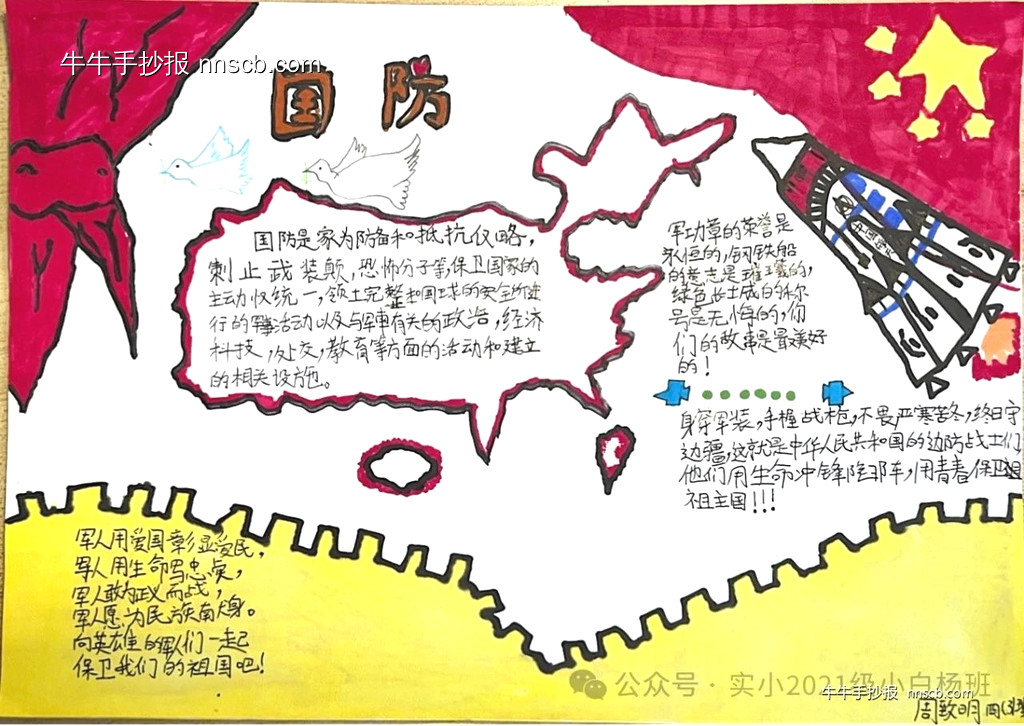 牛牛手抄报 nnscb.com
国防
国防是家为防备和抵抗仪略，
刺止武装颠，恐怖分子等，保卫国家的
主动权统一，领土完整和国球的安全所进
行的軍活动以及与军車有关的政治，经济
科技，处交，教育等方面的活动和建立
的相关设施。
军功章的荣誉是
永恒的，钢铁船
的意志是璀璨的，
绿色长土成的称
号是无悔的，你
们的故事是最美好
的！
中国
身穿军装，手握战枪，不畏严寒苦冬，终日守
边疆，这就是中华人民共和国的边防战士们
他们用生命冲锋陷那车，用青春保卫祖
祖主国!!!
军人用爱国彰显爱民，
军人用生命写忠贞，
军人敢为政而战，
军人愿为民族南大身。
向英雄的军人们一起
保卫我们的祖国吧！
公众号·实小2021级小白杨班
牛牛手抄报 nnscb.com
周致明 四